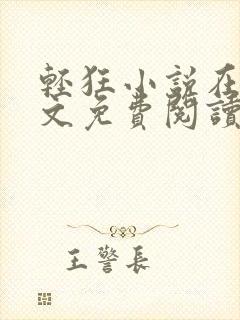 輕狂小說在
文免費閱讀
王警長